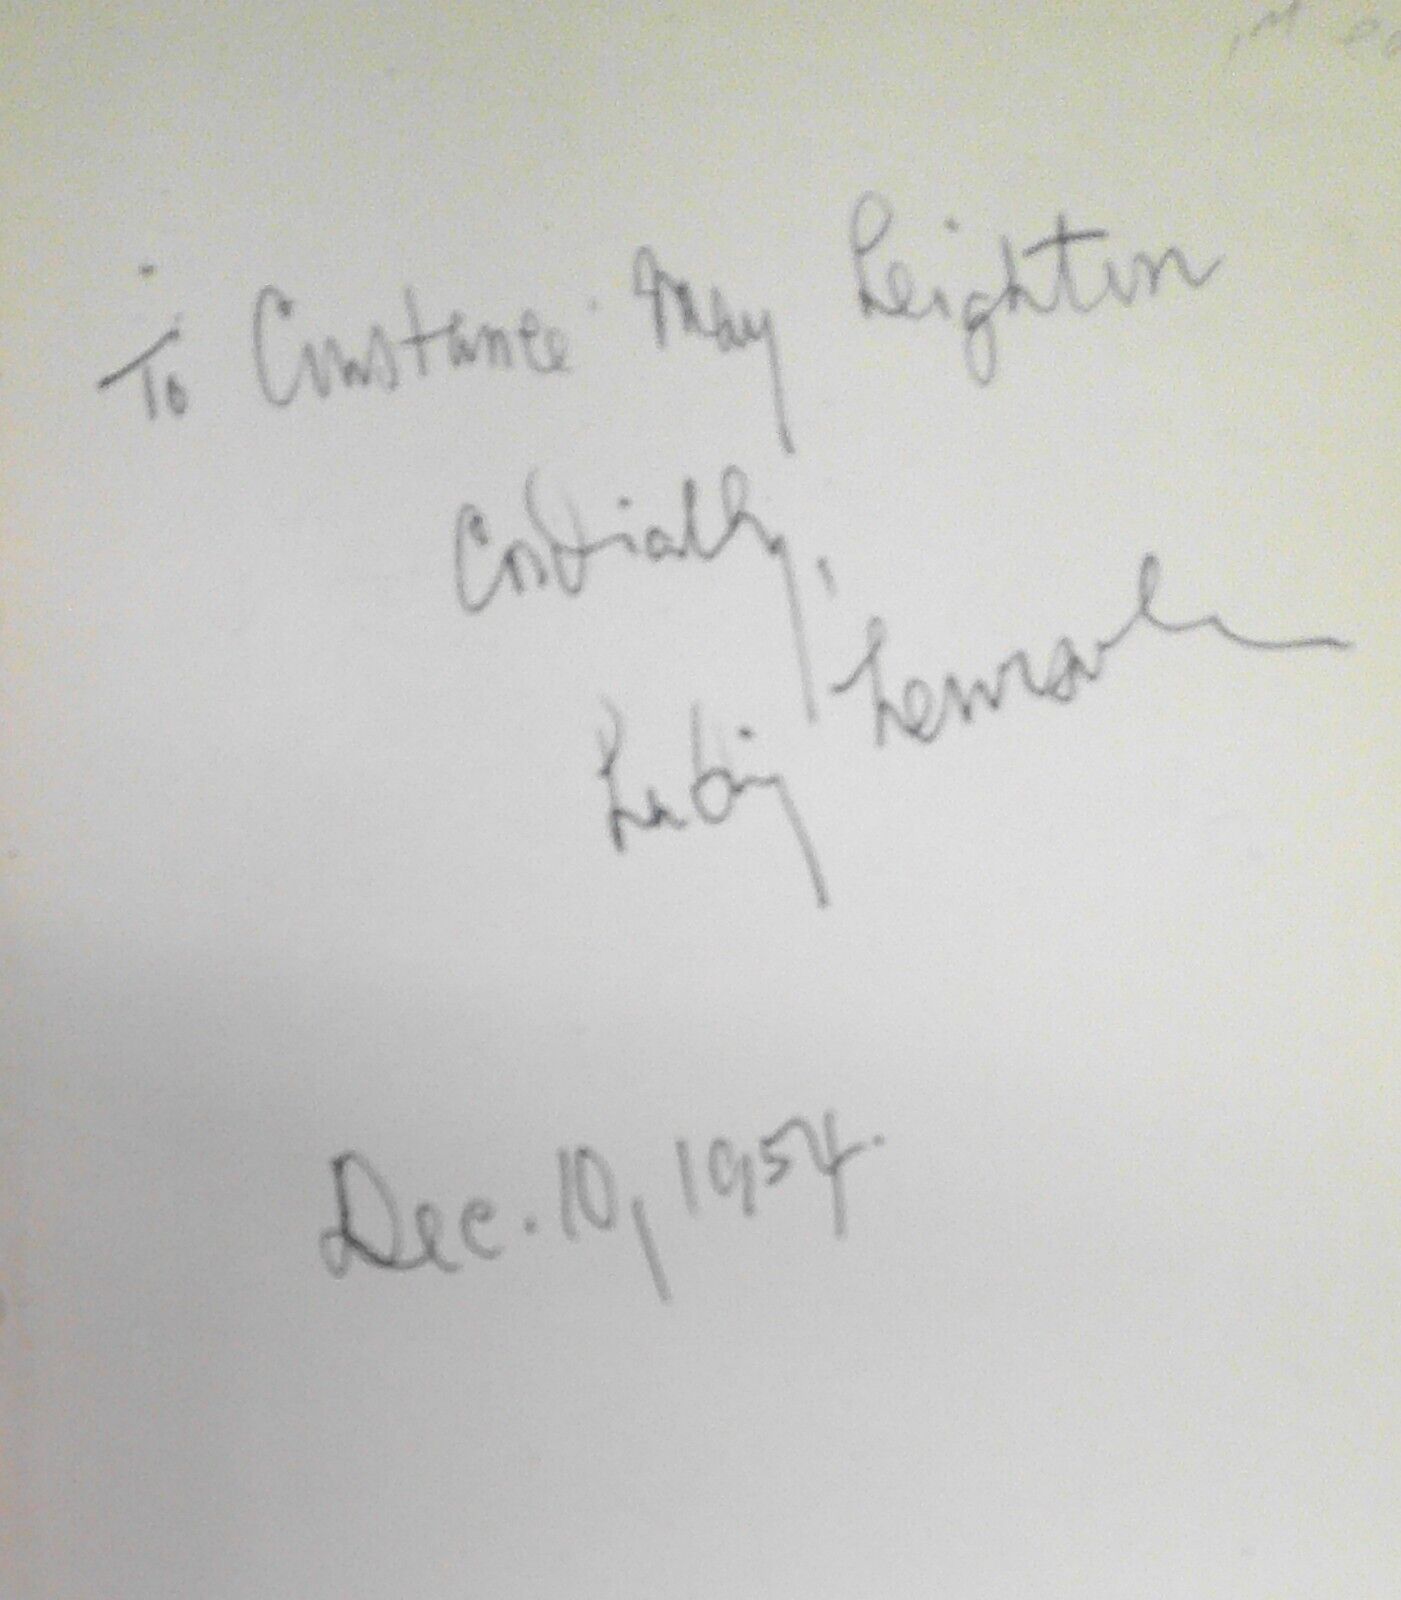 To Constance May Leighton
Cordially,
Dec. 10, 1954.